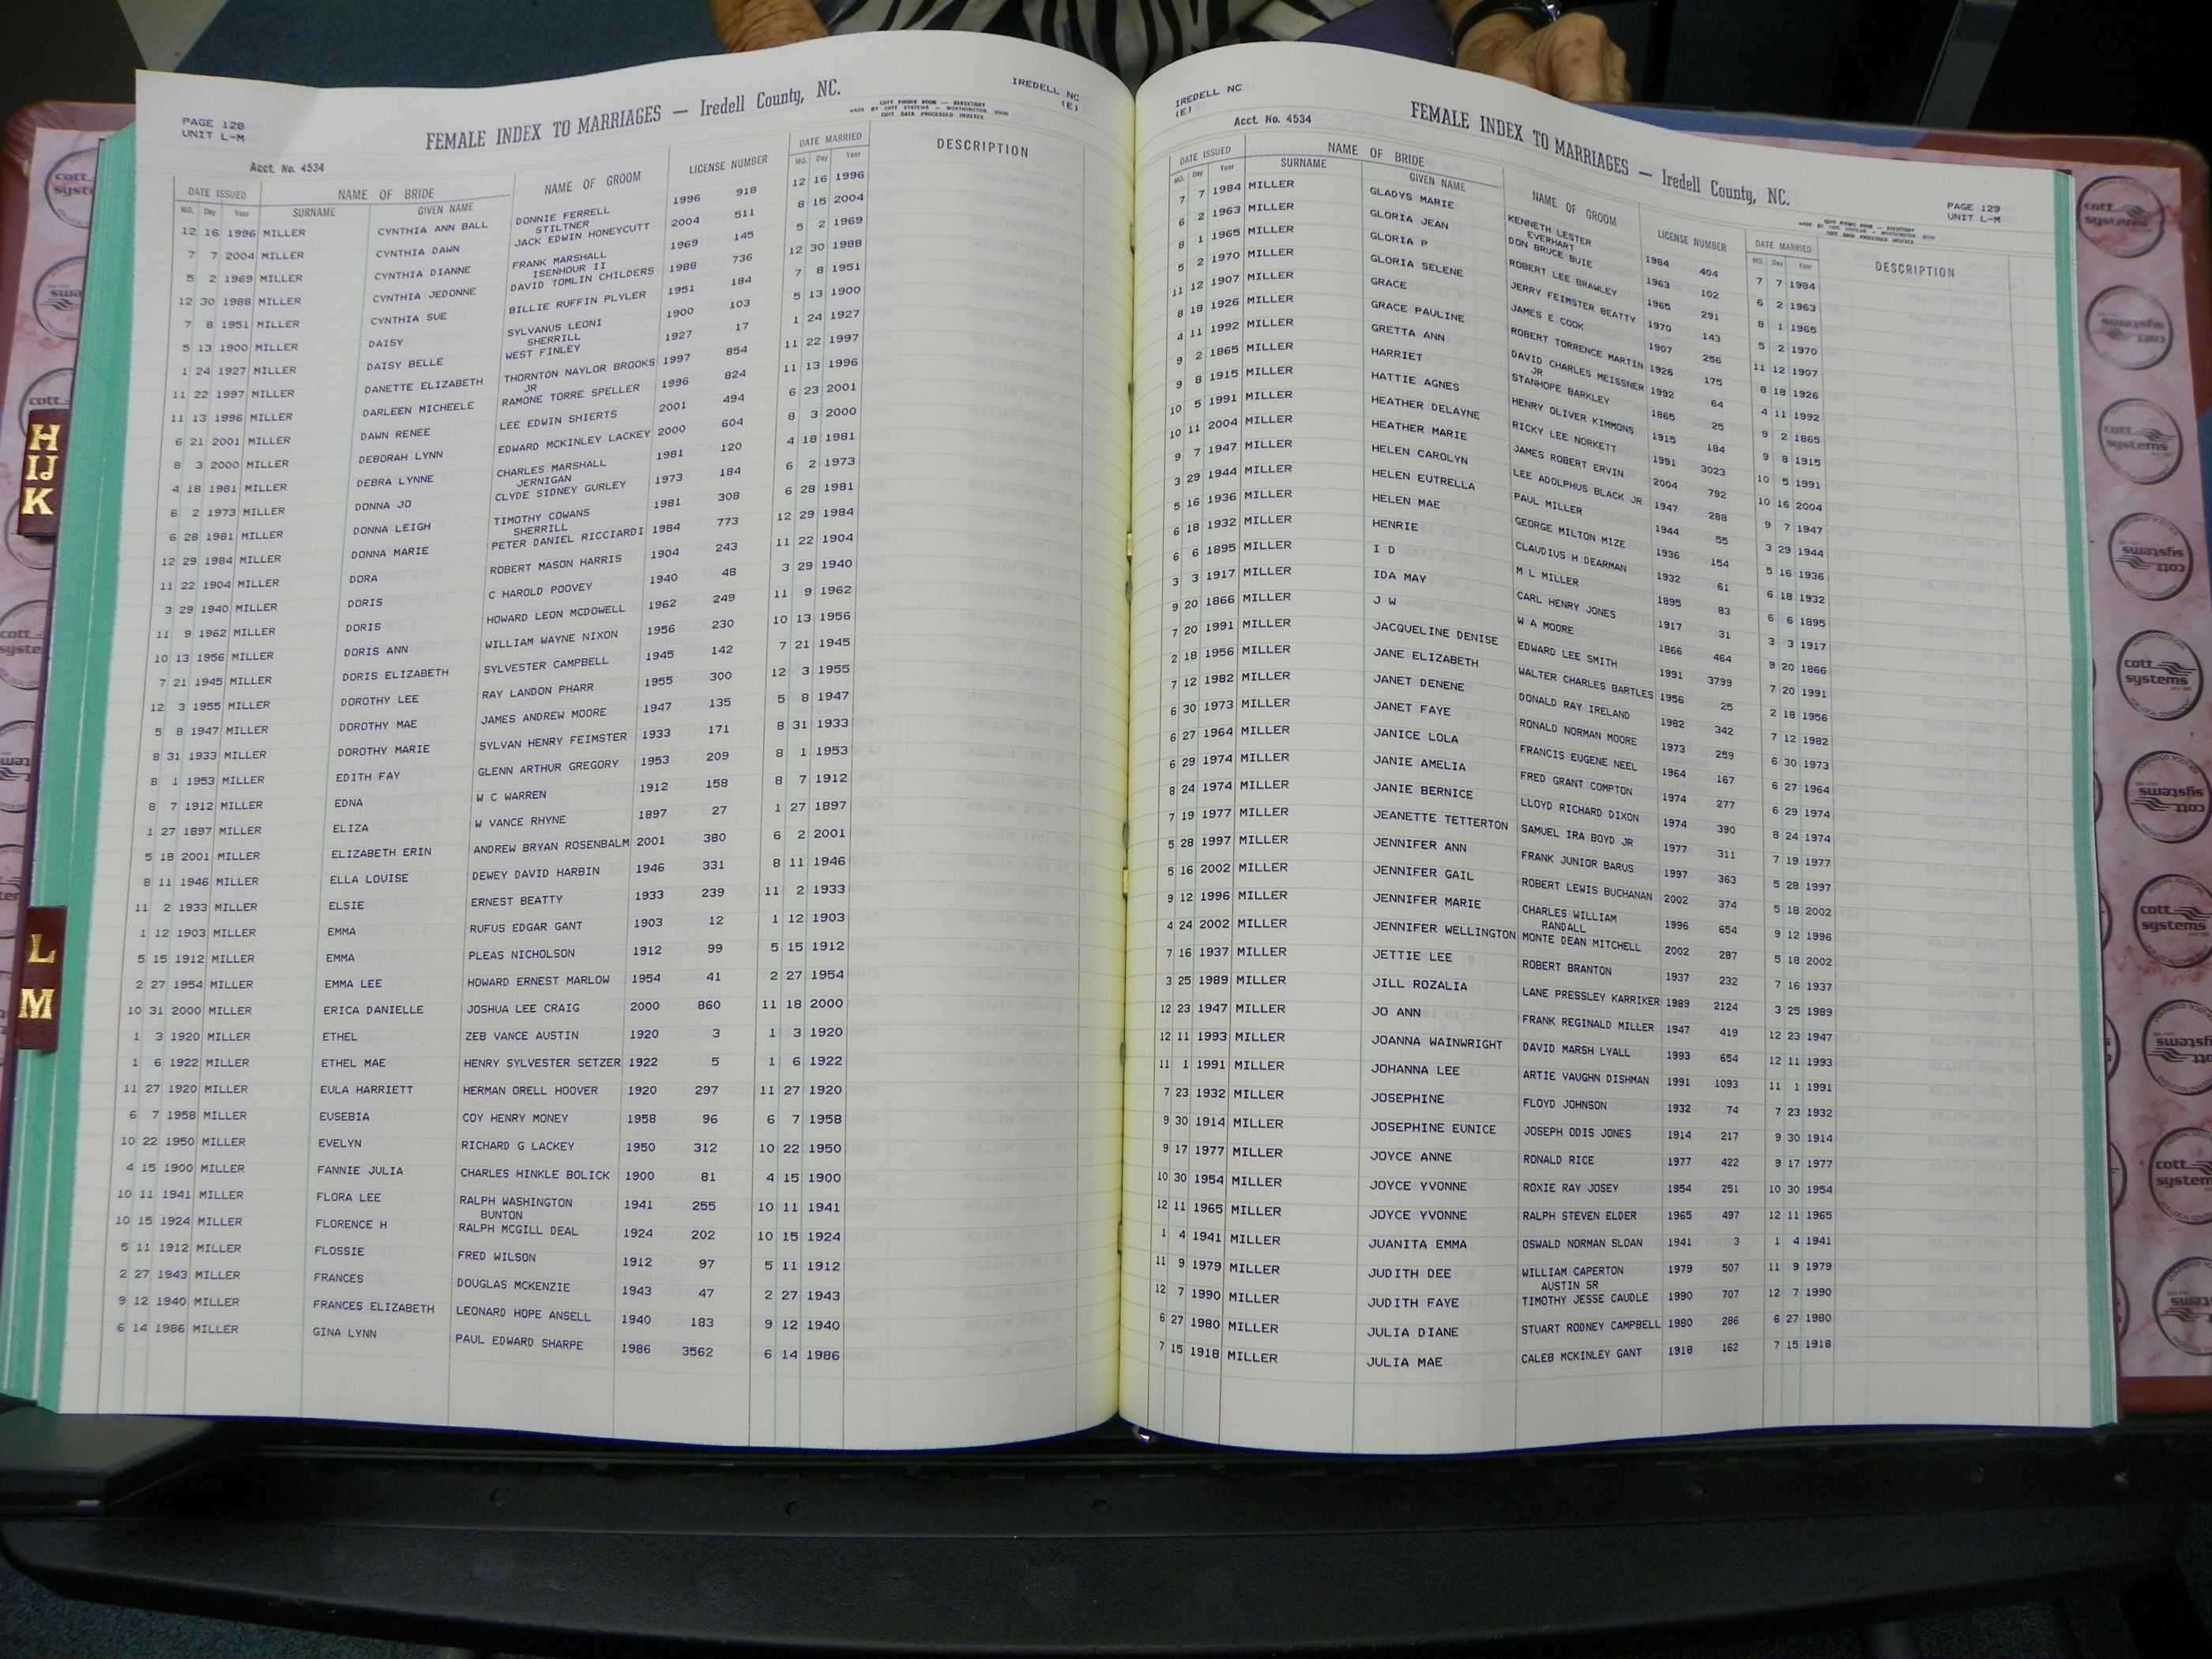 PAGE 128
UNIT L-M
FEMALE INDEX TO MARRIAGES — Iredell County, NC.
COTT FINDEX BOOK — DIRECTORY
MADE BY COTT SYSTEMS — WORTHINGTON OHIO
COTT DATA PROCESSED INDEXES
IREDELL NC
(E)
Acct. No. 4534
DATE ISSUED NAME OF BRIDE NAME OF GROOM LICENSE NUMBER DATE MARRIED DESCRIPTION
MO. Day Year SURNAME GIVEN NAME MO. Day Year
12 16 1996 MILLER CYNTHIA ANN BALL DONNIE FERRELL 1996 918 12 16 1996
STILTNER
7 7 2004 MILLER CYNTHIA DAWN JACK EDWIN HONEYCUTT 2004 511 8 15 2004
5 2 1969 MILLER CYNTHIA DIANNE FRANK MARSHALL 1969 145 5 2 1969
ISENHOUR II
12 30 1988 MILLER CYNTHIA JEDONNE DAVID TOMLIN CHILDERS 1988 736 12 30 1988
7 8 1951 MILLER CYNTHIA SUE BILLIE RUFFIN PLYLER 1951 184 7 8 1951
5 13 1900 MILLER DAISY SYLVANUS LEONI 1900 103 5 13 1900
SHERRILL
1 24 1927 MILLER DAISY BELLE WEST FINLEY 1927 17 1 24 1927
11 22 1997 MILLER DANETTE ELIZABETH THORNTON NAYLOR BROOKS 1997 854 11 22 1997
JR
11 13 1996 MILLER DARLEEN MICHEELE RAMONE TORRE SPELLER 1996 824 11 13 1996
6 21 2001 MILLER DAWN RENEE LEE EDWIN SHIERTS 2001 494 6 23 2001
8 3 2000 MILLER DEBORAH LYNN EDWARD MCKINLEY LACKEY 2000 604 8 3 2000
4 18 1981 MILLER DEBRA LYNNE CHARLES MARSHALL 1981 120 4 18 1981
JERNIGAN
6 2 1973 MILLER DONNA JO CLYDE SIDNEY GURLEY 1973 184 6 2 1973
6 28 1981 MILLER DONNA LEIGH TIMOTHY COWANS 1981 308 6 28 1981
SHERRILL
12 29 1984 MILLER DONNA MARIE PETER DANIEL RICCIARDI 1984 773 12 29 1984
11 22 1904 MILLER DORA ROBERT MASON HARRIS 1904 243 11 22 1904
3 29 1940 MILLER DORIS C HAROLD POOVEY 1940 48 3 29 1940
11 9 1962 MILLER DORIS HOWARD LEON MCDOWELL 1962 249 11 9 1962
10 13 1956 MILLER DORIS ANN WILLIAM WAYNE NIXON 1956 230 10 13 1956
7 21 1945 MILLER DORIS ELIZABETH SYLVESTER CAMPBELL 1945 142 7 21 1945
12 3 1955 MILLER DOROTHY LEE RAY LANDON PHARR 1955 300 12 3 1955
5 8 1947 MILLER DOROTHY MAE JAMES ANDREW MOORE 1947 135 5 8 1947
8 31 1933 MILLER DOROTHY MARIE SYLVAN HENRY FEIMSTER 1933 171 8 31 1933
8 1 1953 MILLER EDITH FAY GLENN ARTHUR GREGORY 1953 209 8 1 1953
8 7 1912 MILLER EDNA W C WARREN 1912 158 8 7 1912
1 27 1897 MILLER ELIZA W VANCE RHYNE 1897 27 1 27 1897
5 18 2001 MILLER ELIZABETH ERIN ANDREW BRYAN ROSENBALM 2001 380 6 2 2001
8 11 1946 MILLER ELLA LOUISE DEWEY DAVID HARBIN 1946 331 8 11 1946
11 2 1933 MILLER ELSIE ERNEST BEATTY 1933 239 11 2 1933
1 12 1903 MILLER EMMA RUFUS EDGAR GANT 1903 12 1 12 1903
5 15 1912 MILLER EMMA PLEAS NICHOLSON 1912 99 5 15 1912
2 27 1954 MILLER EMMA LEE HOWARD ERNEST MARLOW 1954 41 2 27 1954
10 31 2000 MILLER ERICA DANIELLE JOSHUA LEE CRAIG 2000 860 11 18 2000
1 3 1920 MILLER ETHEL ZEB VANCE AUSTIN 1920 3 1 3 1920
1 6 1922 MILLER ETHEL MAE HENRY SYLVESTER SETZER 1922 5 1 6 1922
11 27 1920 MILLER EULA HARRIETT HERMAN ORELL HOOVER 1920 297 11 27 1920
6 7 1958 MILLER EUSEBIA COY HENRY MONEY 1958 96 6 7 1958
10 22 1950 MILLER EVELYN RICHARD G LACKEY 1950 312 10 22 1950
4 15 1900 MILLER FANNIE JULIA CHARLES HINKLE BOLICK 1900 81 4 15 1900
10 11 1941 MILLER FLORA LEE RALPH WASHINGTON 1941 255 10 11 1941
BUNTON
10 15 1924 MILLER FLORENCE H RALPH MCGILL DEAL 1924 202 10 15 1924
5 11 1912 MILLER FLOSSIE FRED WILSON 1912 97 5 11 1912
2 27 1943 MILLER FRANCES DOUGLAS MCKENZIE 1943 47 2 27 1943
9 12 1940 MILLER FRANCES ELIZABETH LEONARD HOPE ANSELL 1940 183 9 12 1940
6 14 1986 MILLER GINA LYNN PAUL EDWARD SHARPE 1986 3562 6 14 1986
H
IJ
K
L
M
IREDELL NC
(E)
FEMALE INDEX TO MARRIAGES — Iredell County, NC.
PAGE 129
UNIT L-M
COTT FINDEX BOOK — DIRECTORY
MADE BY COTT SYSTEMS — WORTHINGTON OHIO
COTT DATA PROCESSED INDEXES
Acct. No. 4534
DATE ISSUED NAME OF BRIDE NAME OF GROOM LICENSE NUMBER DATE MARRIED DESCRIPTION
MO. Day Year SURNAME GIVEN NAME MO. Day Year
7 7 1984 MILLER GLADYS MARIE KENNETH LESTER 1984 404 7 7 1984
EVERHART
6 2 1963 MILLER GLORIA JEAN DON BRUCE BUIE 1963 102 6 2 1963
8 1 1965 MILLER GLORIA P ROBERT LEE BRAWLEY 1965 291 8 1 1965
5 2 1970 MILLER GLORIA SELENE JERRY FEIMSTER BEATTY 1970 143 5 2 1970
11 12 1907 MILLER GRACE JAMES E COOK 1907 256 11 12 1907
8 18 1926 MILLER GRACE PAULINE ROBERT TORRENCE MARTIN 1926 175 8 18 1926
4 11 1992 MILLER GRETTA ANN DAVID CHARLES MEISSNER 1992 64 4 11 1992
JR
9 2 1865 MILLER HARRIET STANHOPE BARKLEY 1865 25 9 2 1865
9 8 1915 MILLER HATTIE AGNES HENRY OLIVER KIMMONS 1915 184 9 8 1915
10 5 1991 MILLER HEATHER DELAYNE RICKY LEE NORKETT 1991 3023 10 5 1991
10 11 2004 MILLER HEATHER MARIE JAMES ROBERT ERVIN 2004 792 10 16 2004
9 7 1947 MILLER HELEN CAROLYN LEE ADOLPHUS BLACK JR 1947 288 9 7 1947
3 29 1944 MILLER HELEN EUTRELLA PAUL MILLER 1944 55 3 29 1944
5 16 1936 MILLER HELEN MAE GEORGE MILTON MIZE 1936 154 5 16 1936
6 18 1932 MILLER HENRIE CLAUDIUS H DEARMAN 1932 61 6 18 1932
6 6 1895 MILLER I D M L MILLER 1895 83 6 6 1895
3 3 1917 MILLER IDA MAY CARL HENRY JONES 1917 31 3 3 1917
9 20 1866 MILLER J W W A MOORE 1866 464 9 20 1866
7 20 1991 MILLER JACQUELINE DENISE EDWARD LEE SMITH 1991 3799 7 20 1991
2 18 1956 MILLER JANE ELIZABETH WALTER CHARLES BARTLES 1956 25 2 18 1956
7 12 1982 MILLER JANET DENENE DONALD RAY IRELAND 1982 342 7 12 1982
6 30 1973 MILLER JANET FAYE RONALD NORMAN MOORE 1973 259 6 30 1973
6 27 1964 MILLER JANICE LOLA FRANCIS EUGENE NEEL 1964 167 6 27 1964
6 29 1974 MILLER JANIE AMELIA FRED GRANT COMPTON 1974 277 6 29 1974
8 24 1974 MILLER JANIE BERNICE LLOYD RICHARD DIXON 1974 390 8 24 1974
7 19 1977 MILLER JEANETTE TETTERTON SAMUEL IRA BOYD JR 1977 311 7 19 1977
5 28 1997 MILLER JENNIFER ANN FRANK JUNIOR BARUS 1997 363 5 28 1997
5 16 2002 MILLER JENNIFER GAIL ROBERT LEWIS BUCHANAN 2002 374 5 18 2002
9 12 1996 MILLER JENNIFER MARIE CHARLES WILLIAM 1996 654 9 12 1996
RANDALL
4 24 2002 MILLER JENNIFER WELLINGTON MONTE DEAN MITCHELL 2002 287 5 18 2002
7 16 1937 MILLER JETTIE LEE ROBERT BRANTON 1937 232 7 16 1937
3 25 1989 MILLER JILL ROZALIA LANE PRESSLEY KARRIKER 1989 2124 3 25 1989
12 23 1947 MILLER JO ANN FRANK REGINALD MILLER 1947 419 12 23 1947
12 11 1993 MILLER JOANNA WAINWRIGHT DAVID MARSH LYALL 1993 654 12 11 1993
11 1 1991 MILLER JOHANNA LEE ARTIE VAUGHN DISHMAN 1991 1093 11 1 1991
7 23 1932 MILLER JOSEPHINE FLOYD JOHNSON 1932 74 7 23 1932
9 30 1914 MILLER JOSEPHINE EUNICE JOSEPH ODIS JONES 1914 217 9 30 1914
9 17 1977 MILLER JOYCE ANNE RONALD RICE 1977 422 9 17 1977
10 30 1954 MILLER JOYCE YVONNE ROXIE RAY JOSEY 1954 251 10 30 1954
12 11 1965 MILLER JOYCE YVONNE RALPH STEVEN ELDER 1965 497 12 11 1965
1 4 1941 MILLER JUANITA EMMA OSWALD NORMAN SLOAN 1941 3 1 4 1941
11 9 1979 MILLER JUDITH DEE WILLIAM CAPERTON 1979 507 11 9 1979
AUSTIN SR
12 7 1990 MILLER JUDITH FAYE TIMOTHY JESSE CAUDLE 1990 707 12 7 1990
6 27 1980 MILLER JULIA DIANE STUART RODNEY CAMPBELL 1980 286 6 27 1980
7 15 1918 MILLER JULIA MAE CALEB MCKINLEY GANT 1918 162 7 15 1918
cott
systems
cott
systems
cott
systems